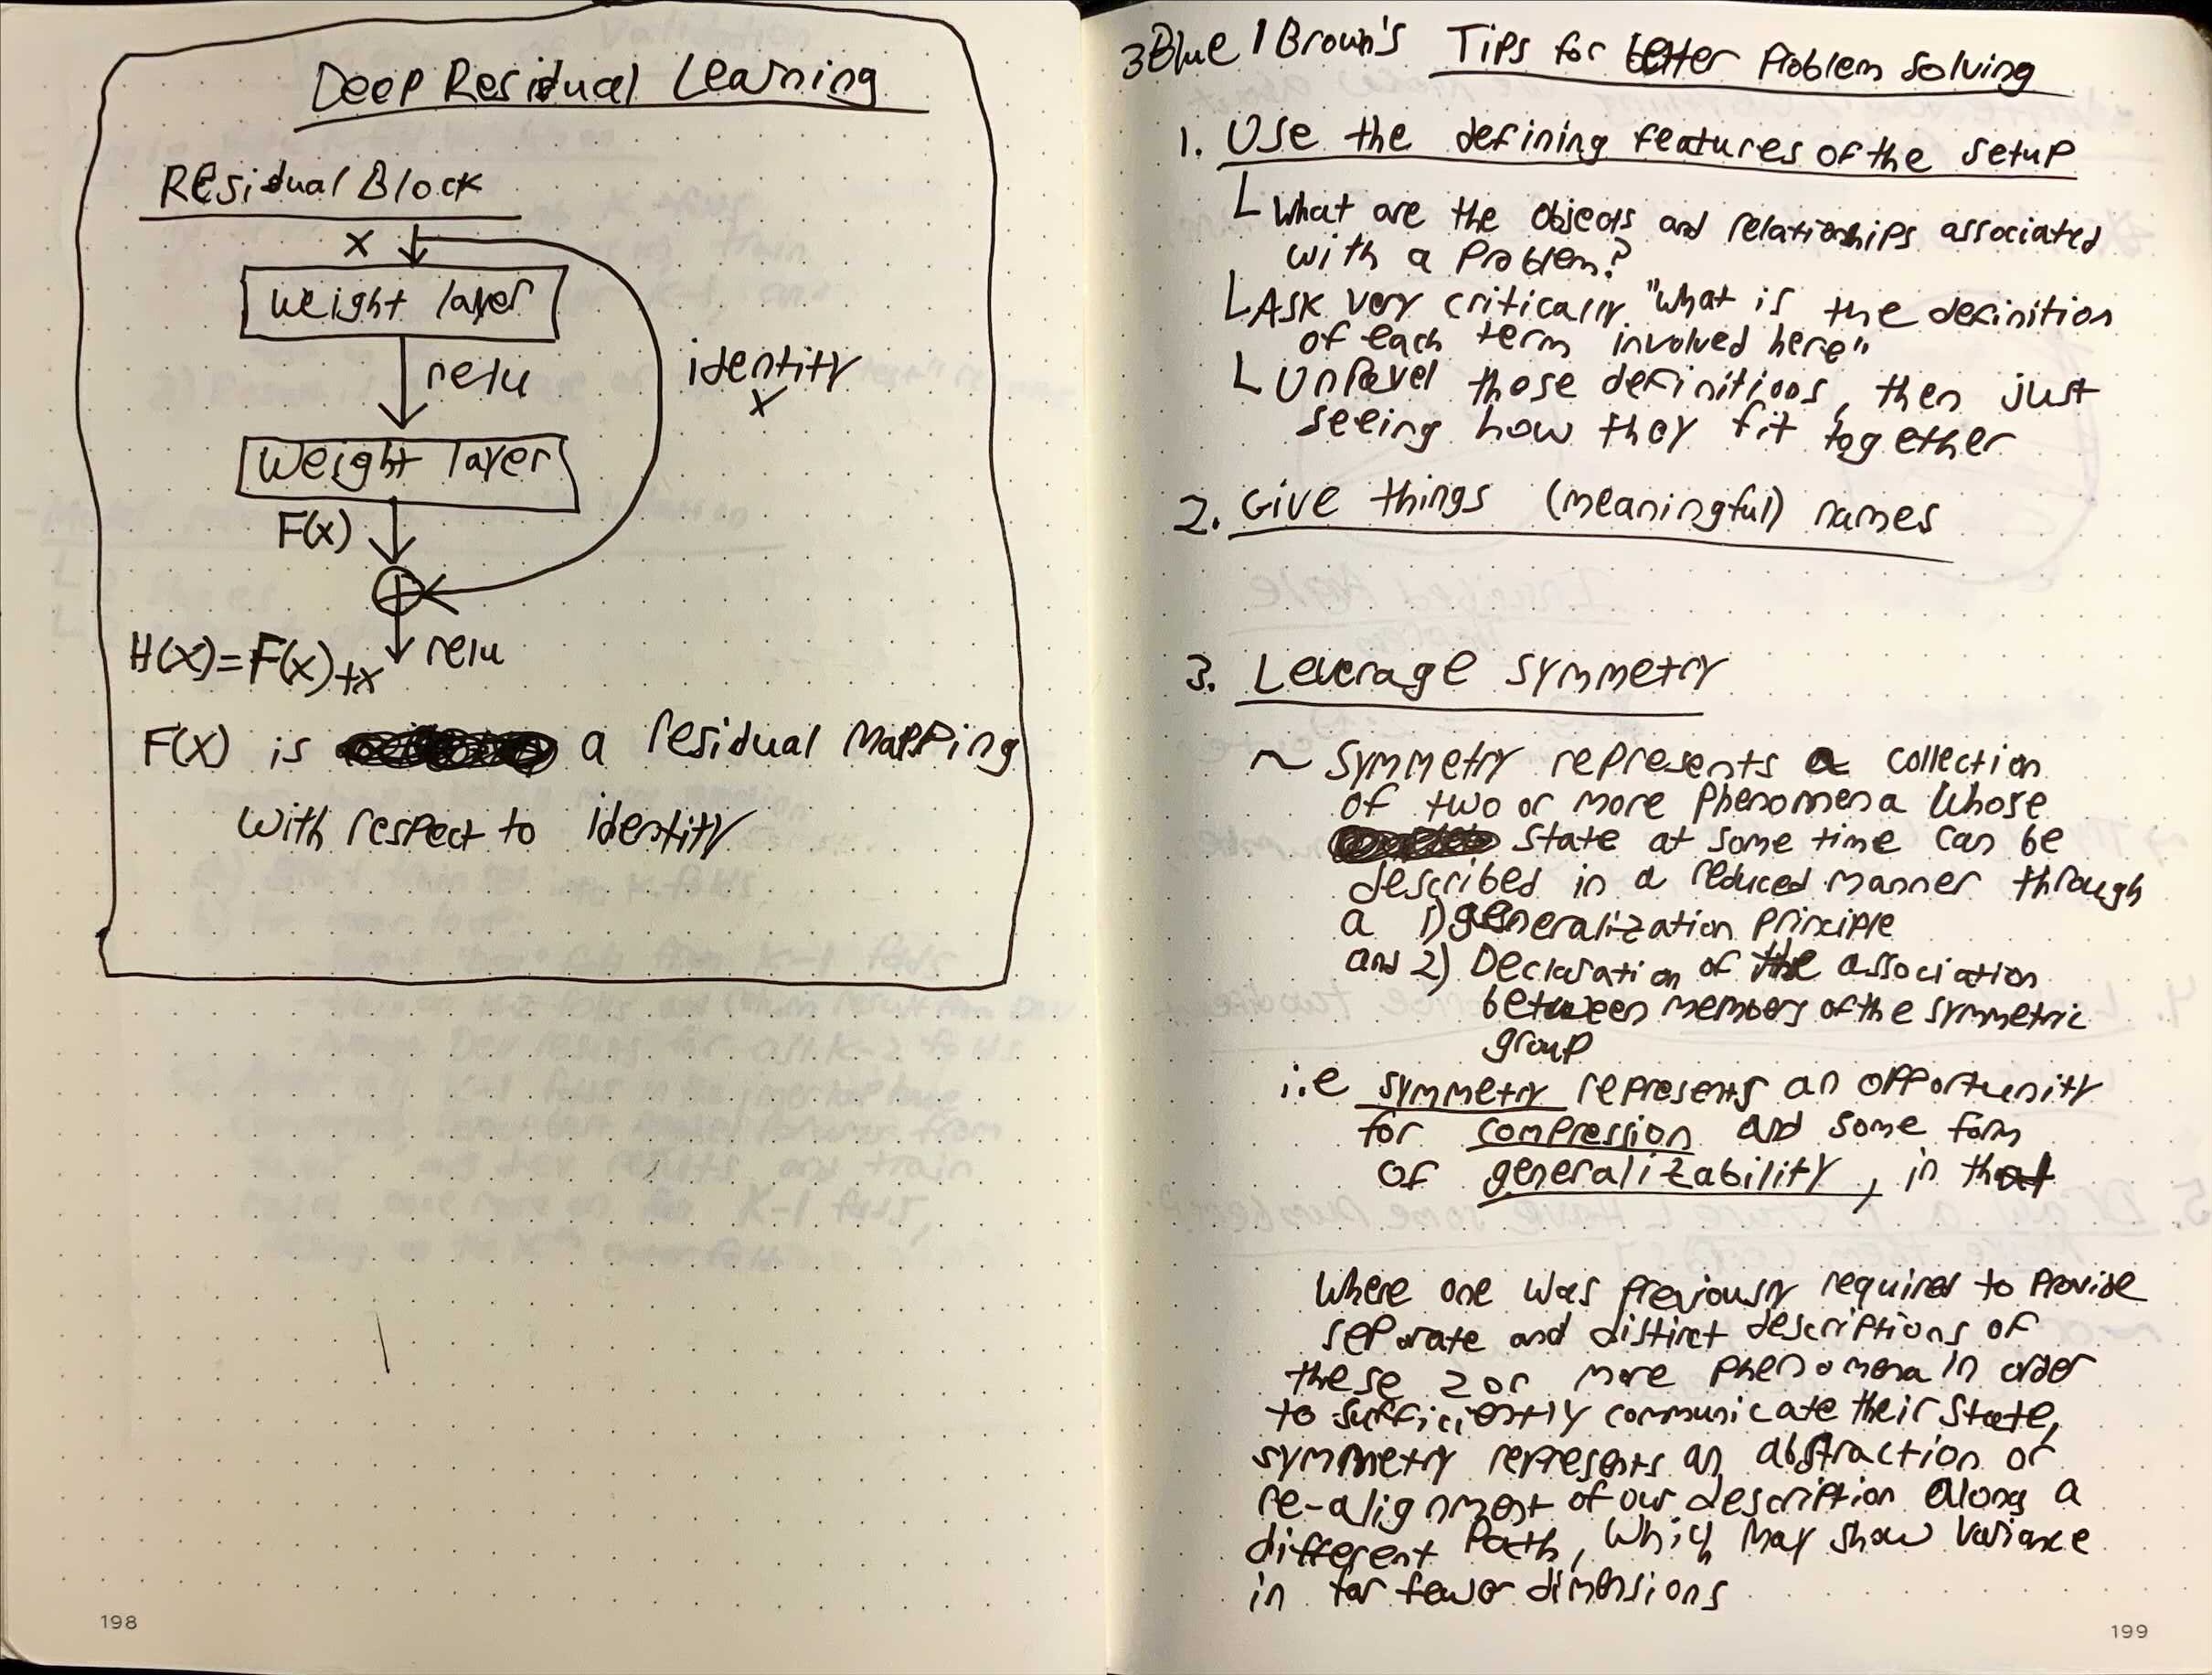 Deep Residual Learning
Residual Block
x
weight layer
relu
identity
x
weight layer
F(x)
H(x)=F(x)+x
relu
F(x) is a residual mapping
with respect to identity
198
3Blue1Brown's Tips for better Problem Solving
1. Use the defining features of the setup
What are the objects and relationships associated
with a problem?
Ask very critically "what is the definition
of each term involved here"
Unravel those definitions, then just
seeing how they fit together
2. Give things (meaningful) names
3. Leverage symmetry
~ Symmetry represents a collection
of two or more phenomena whose
state at some time can be
described in a reduced manner through
a 1) generalization principle
and 2) Declaration of the association
between members of the symmetric
group
i.e symmetry represents an opportunity
for compression and some form
of generalizability, in that
Where one was previously required to provide
seperate and distinct descriptions of
these 2 or more phenomena in order
to sufficiently communicate their state,
symmetry represents an abstraction or
re-alignment of our description along a
different path, which may show variance
in far fewer dimensions
199